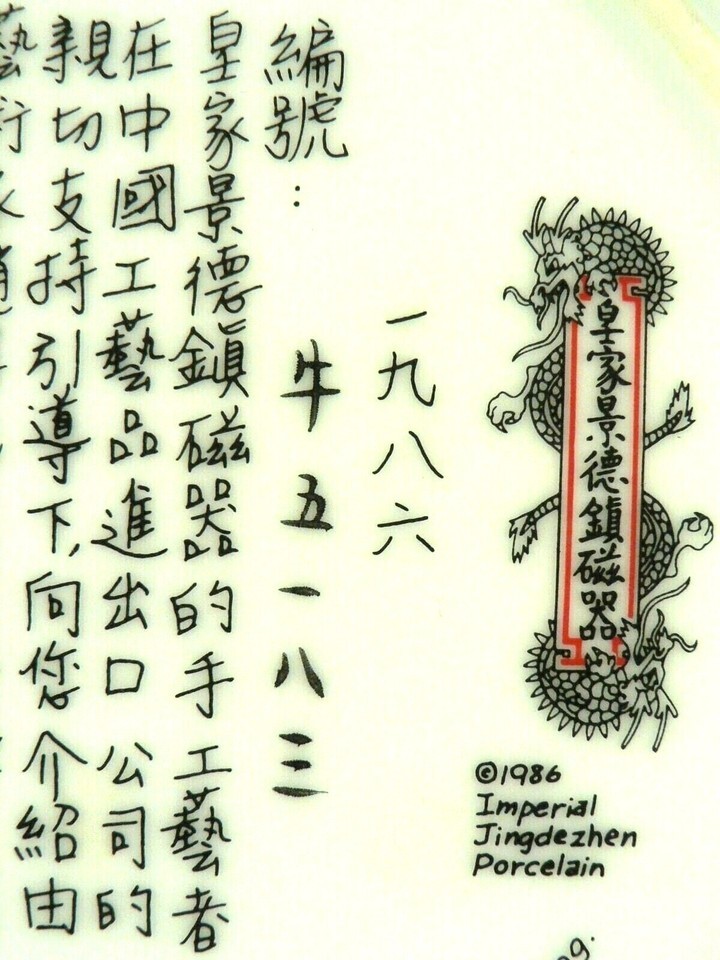 皇家景德鎮磁器
©1986
Imperial
Jingdezhen
Porcelain
一九八六
編號:
牛五一八三
皇家景德鎮磁器的手工藝者
在中國工藝品進出口公司的
親切支持引導下,向您介紹由